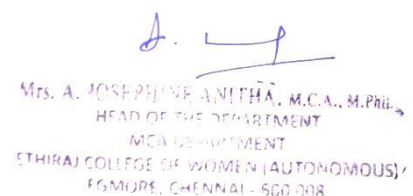 A.
Mrs. A. JOSEPHINE ANITHA, M.C.A., M.Phil.,
HEAD OF THE DEPARTMENT
MCA DEPARTMENT
ETHIRAJ COLLEGE OF WOMEN (AUTONOMOUS)
EGMORE, CHENNAI - 600 008